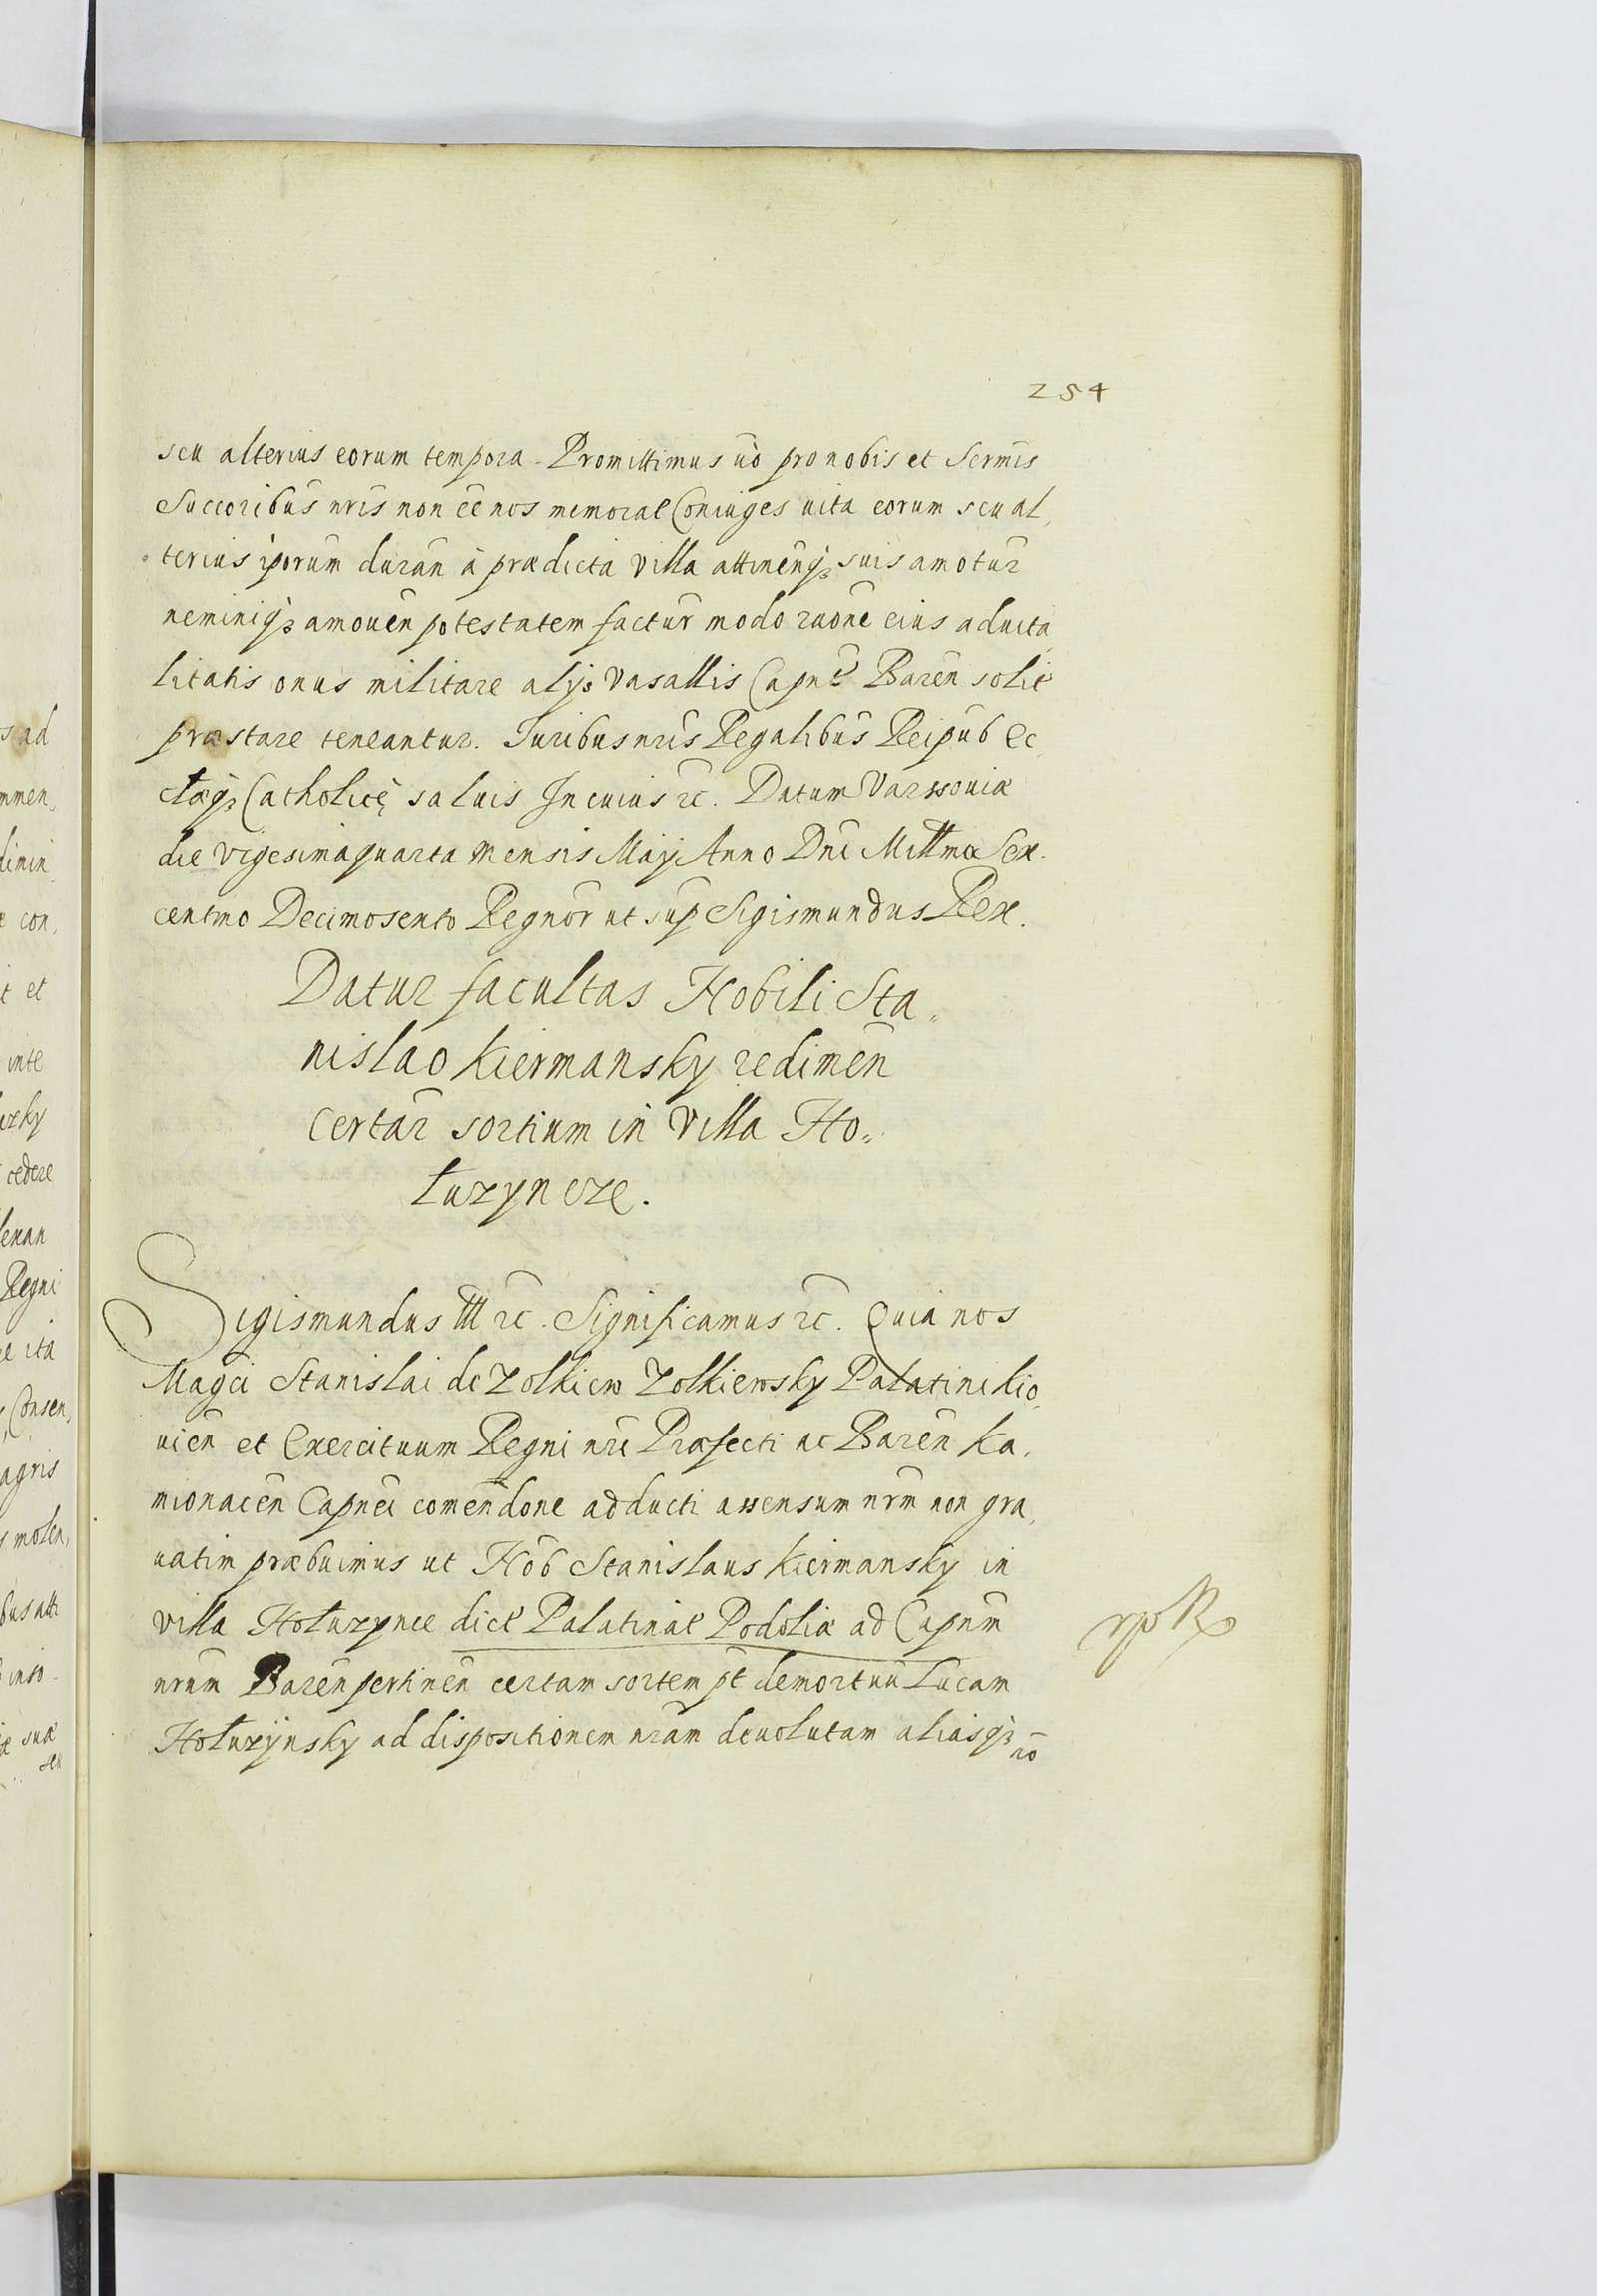 254
seu alterius eorum tempora. Promittimus uo pro nobis et Sermis
Succoribus nris non ee nos memorat Coniuges uita eorum seu al,
terius iporum duran à prædicta Villa attinengs suis amotur
neminiqȝ amouen potestatem factur modo raone eius aduita
litatis onus militare alys Vasallis Capnt Baren solit
præstare teneantur. Iuribus nris Regalibus Reipub Ec
clæqȝ Catholicę saluis In cuius rc. Datum Varssouiæ
die Vigesima quarta mensis Maij Anno Dni Millmo Sex.
centmo Decimosexto Regnor ut sup Sigismundus Rex.
Datur facultas Nobili Sta„
nislao Kiermansky redimen
Certar sortium in Villa Ho„
łuzyncze.
Sigismundus III rc. Significamus rc. Quia nos
Magci Stanislai de Zolkiew Zolkiewsky Palatini Kio,
uien et Exercituum Regni nri Præfecti ac Baren Ka,
mionacen Capnei comendone adducti assensum nrm non gra,
uatim præbuimus ut Nob Stanislaus Kiermansky in
Villa Hołuzynce dict Palatinat Podoliæ ad Capnm
nrum Baren pertinen certam sortem pt demortuu Lucam
Hołuzijnsky ad dispositionem nram deuolutam aliasqȝ
no
s ad
mmen,
con,
t et
inte
cedere
Regni
ita
Consen,
agris
molen,
suæ
seu